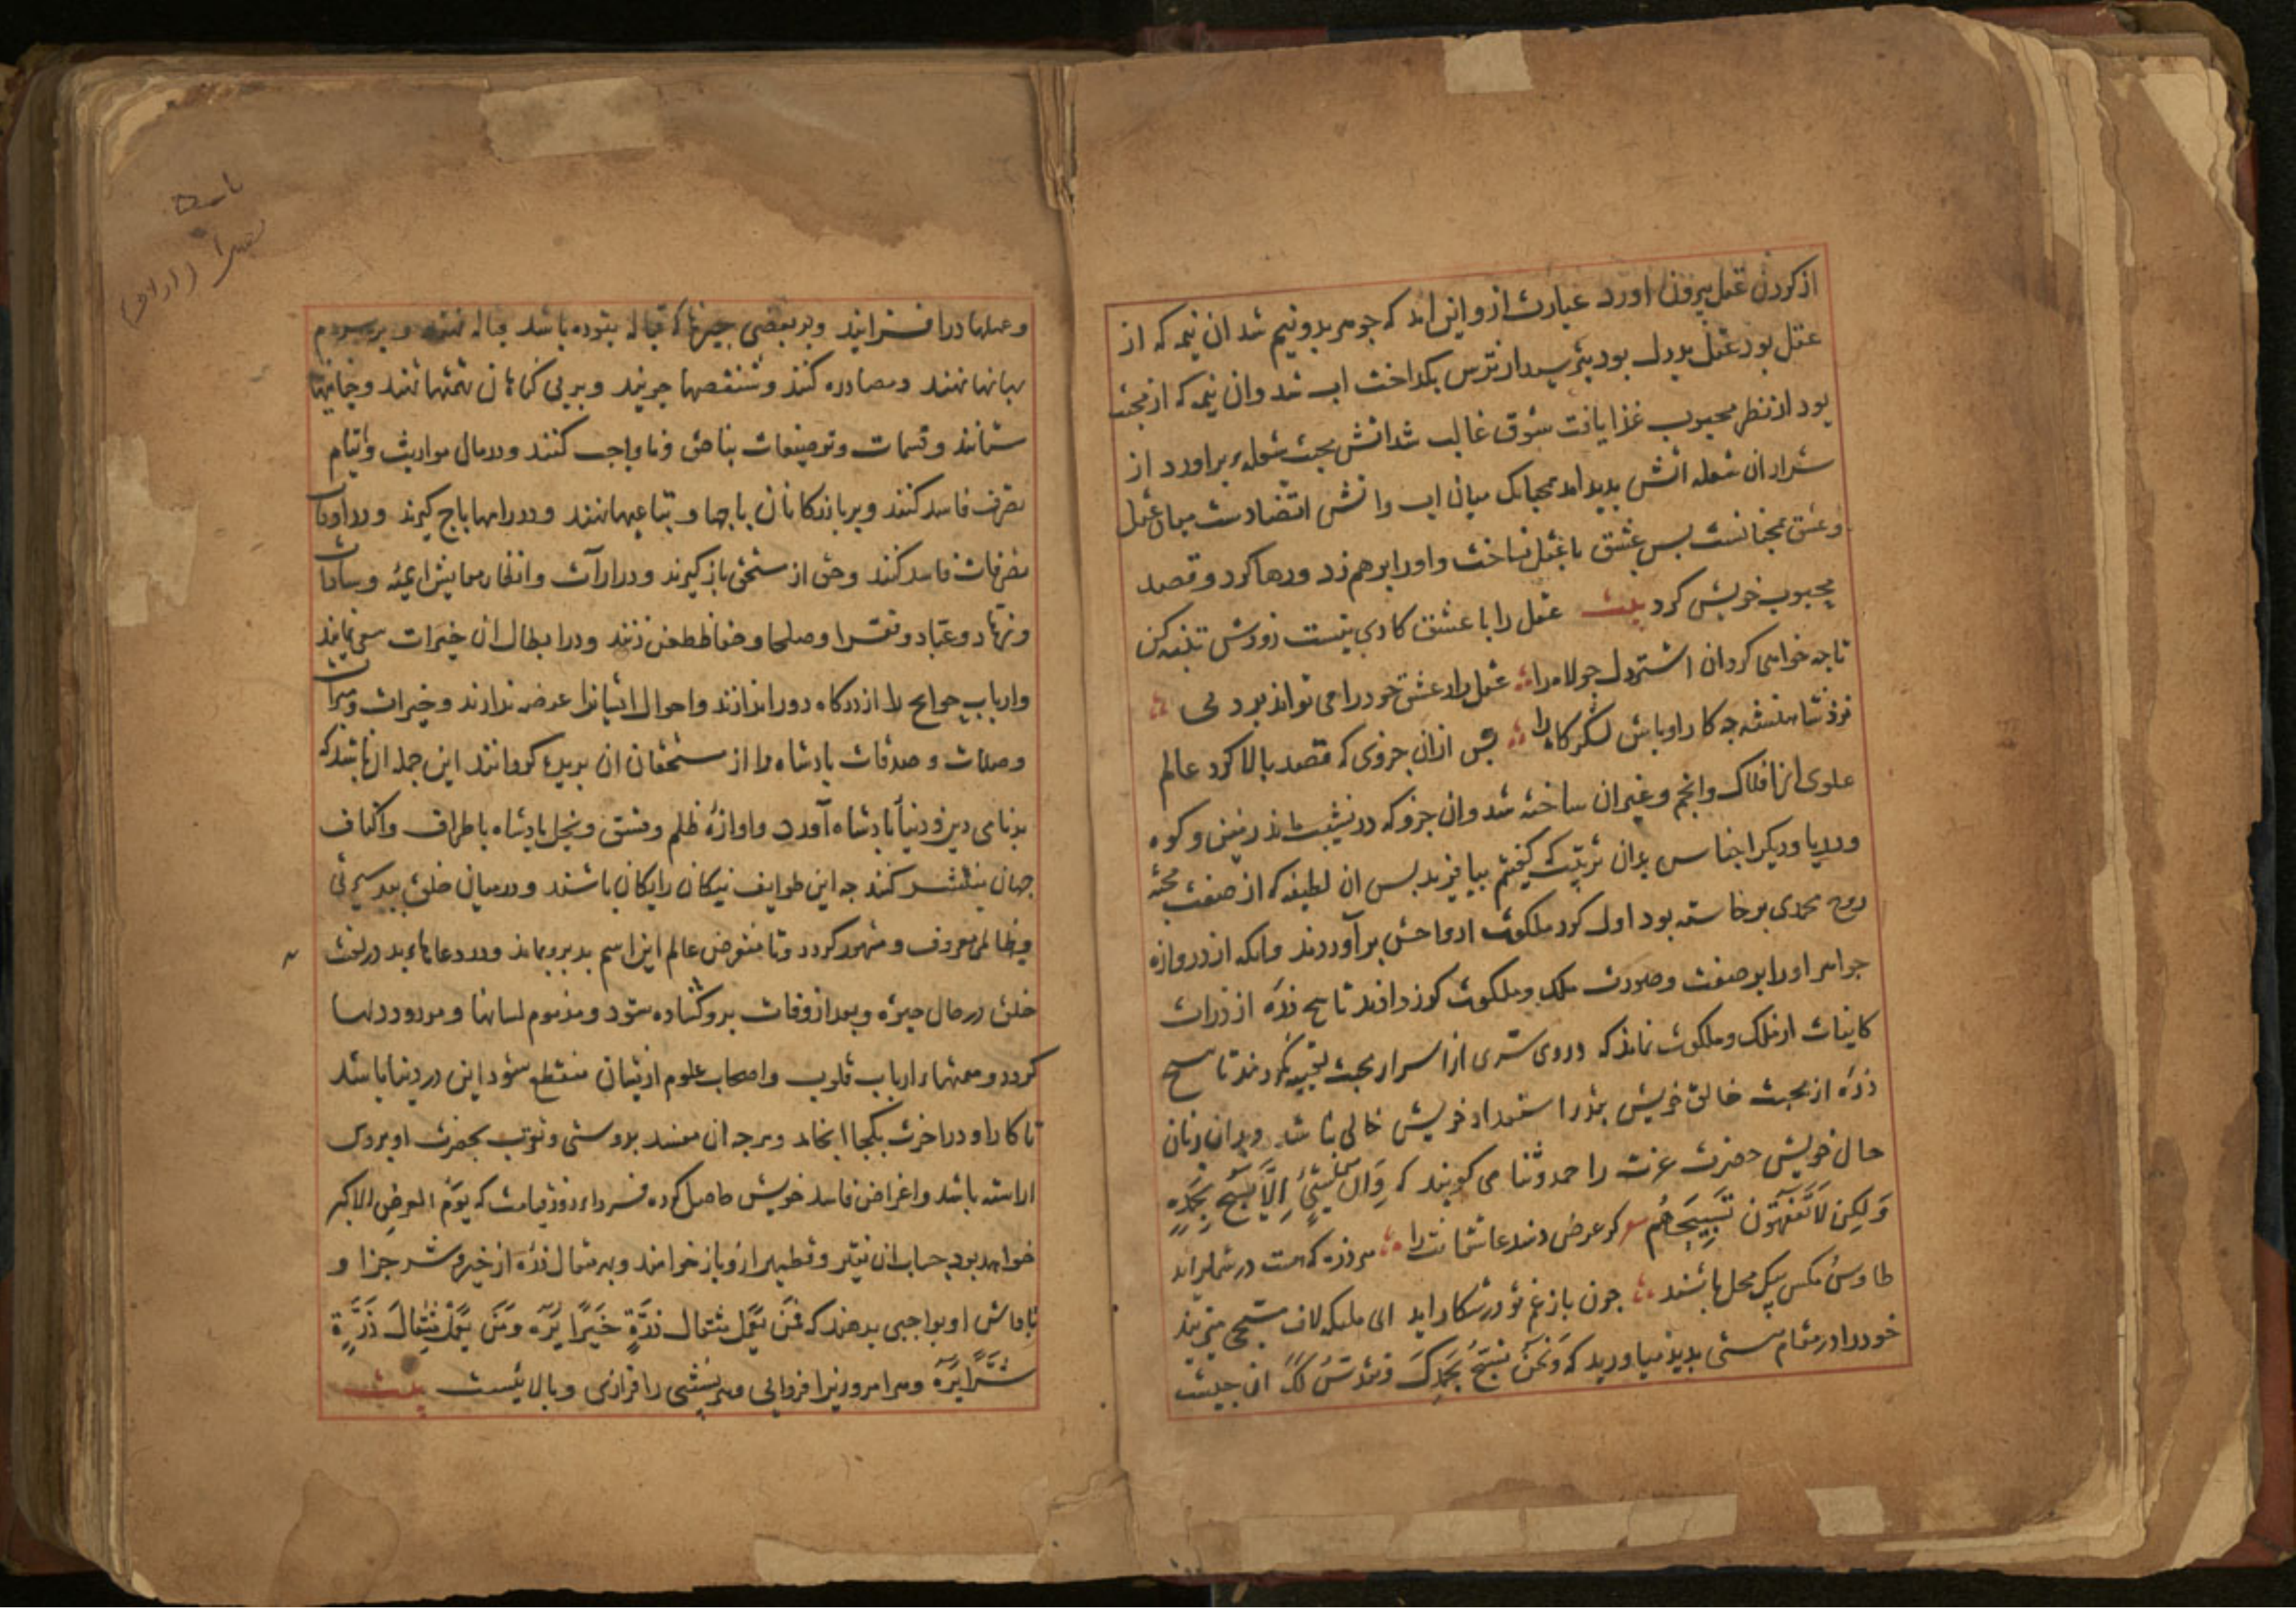 از کردن عقل بیرون اورد عبارت ازو این امد که جوهر بدونیم شد ان نیمه که از
عقل بود عقل بددل بود بترسید از ترس بکداخت اب شد وان نیمه که از محبت
بود از نظر محبوب غذا یافت شوق غالب شد اتش محبت شعله براورد از
شرار ان شعله اتش بدید امد همچنانک میان اب و اتش تضادست میان عقل
و عشق همچنانست بس عشق با عقل نساخت و اورا برهم زد و رها کرد و قصد
محبوب خویش کرد بیت عقل را با عشق کاری نیست زودش پنبه کن
تا چه خواهی کردن ان اشتردل جولاه را عقل را در عشق خود را می تواند برد نی
نزد شاهنشه چه کار اوباش لشکرگاه را بس ازان جزوی که قصد بالا کرد عالم
علوی از افلاک وانجم وغیران ساخته شد وان جزو که در نشیب ماند زمین و کوه
و دریا و دیگر اجناس بدان ترتیب که کفتیم بیافرید بس ان لطیفه که از صفت محبة
روح محمدی برخاسته بود اول کرد ملکوت ارواحش برآوردند وانکه از دروازه
جواهر اورا بر صفت و صورت ملک و ملکوت کذر دادند تا هیچ ذره از ذرات
کاینات از ملک و ملکوت نماند که در وی سری از اسرار محبت تعبیه نکردند تا هیچ
ذره از محبت خالق خویش بقدر استعداد خویش خالی نباشد و بدان زبان
حال خویش حضرت عزت را حمد و ثنا می کویند که وَاِن مِن شَیْئٍ اِلَّا یُسَبِّحُ بِحَمْدِهِ
وَلٰکِن لَّا تَفْقَهُونَ تَسْبِیحَهُم شعر کر عرض دهند عاشقانت را هر ذره که هست در شمار اید
طاوس مکس بیک محل باشند جون باز غم تو در شکار اید ای ملیکه لاف تسبیح میزنید
خود را در مقام هستی بدید میاورید که وَنَحْنُ نُسَبِّحُ بِحَمْدِکَ وَنُقَدِّسُ لَکَ ان حدیث
وعملها درافزایند و بر بعضی جیزها که قباله نبوده باشد قباله نهند و بر مردم
بهانها نهند و مصادره کنند و منقصها جویند و بر بی کناهان تهمتها نهند و جنایتها
ستانند و قسمات و توضیعات بناحق و ناواجب کنند و در مال مواریث و ایتام
تصرف فاسد کنند و بر بازرکانان باجها و بتاعیها نهند و در راهها باج کیرند و در اوقاف
تصرفات فاسد کنند و حق از مستحق باز کیرند و در ادرآرات و انظار و معایش ایمه و سادات
و زهاد و عباد و فقرا و صلحا و حفاظ طعن زنند و در ابطال ان خیرات سعی نمایند
وارباب حوایج را از درکاه دور اندازند و احوال ایشانرا عرضه ندارند و خیرات و مبرات
وصلات و صدقات بادشاه را از مستحقان ان بریده کردانند این جمله ان باشد که
بدنامی دین و دنیا ببادشاه آورد و اوازهٔ ظلم و فسق و بخل بادشاه باطراف واکناف
جهان منتشر کنند چه این طوایف نیکان رایکان باشند و درمیان خلق ببدسیرتی
و ظالمی معروف و مشهور کردد و تا منقرض عالم این اسم بد برو بماند و در دعاهاء بد و در لعنت
خلق در حال حیوة و بعد از وفات برو کشاده شود و مذموم لسانها و مردود دلها
کردد و همتهاء ارباب قلوب و اصحاب علوم ازیشان منقطع شود این در دنیا باشد
تا کار او در اخرت بکجا انجامد و هرجه ان مفسد بدوستی و تقرب بحضرت او بروی
اراسته باشد و اغراض فاسد خویش حاصل کرده فرداء روز قیامت که یَوْمُ العرضِ الاکبر
خواهد بود حساب ان نقیر و قطمیر ازو باز خواهند و بهر مثقال ذره از خیر و شر جزا و
باداش او بواجبی بدهند که فَمَن یَعْمَل مِثْقَالَ ذَرَّةٍ خَیْرًا یَرَهُ وَمَن یَعْمَلْ مِثْقَالَ ذَرَّةٍ
شَرًّا یَرَهُ و هر امروز را فردایی و هر نشیبی را فرازی و بالائیست بیت